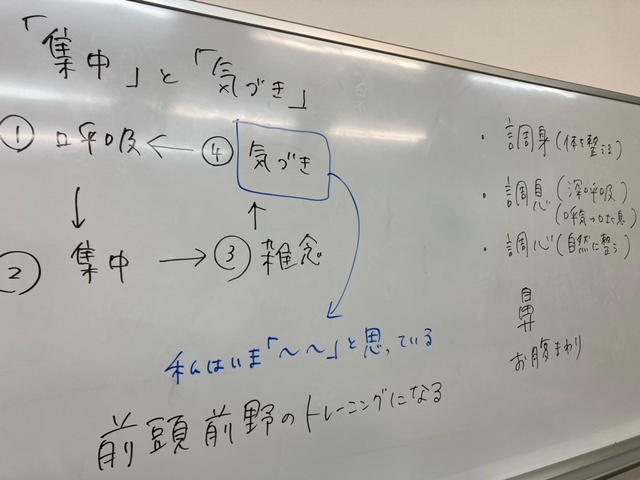 「集中」と「気づき」
① 呼吸 ← ④ 気づき
↓ ↑
② 集中 → ③ 雑念
私はいま「〜〜」と思っている
前頭前野のトレーニングになる
・調身(体を整える)
・調息(深呼吸)
(呼気→吐く息)
・調心(自然に整う)
鼻
お腹まわり